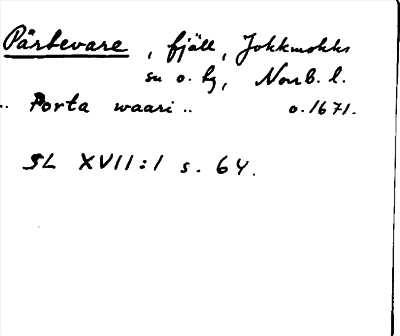 Pärtevare, fjäll, Jokkmokks
sn o. hg, Norrb. l.
.. Porta waari .. o. 1671.
SL XVII:1 s. 64.